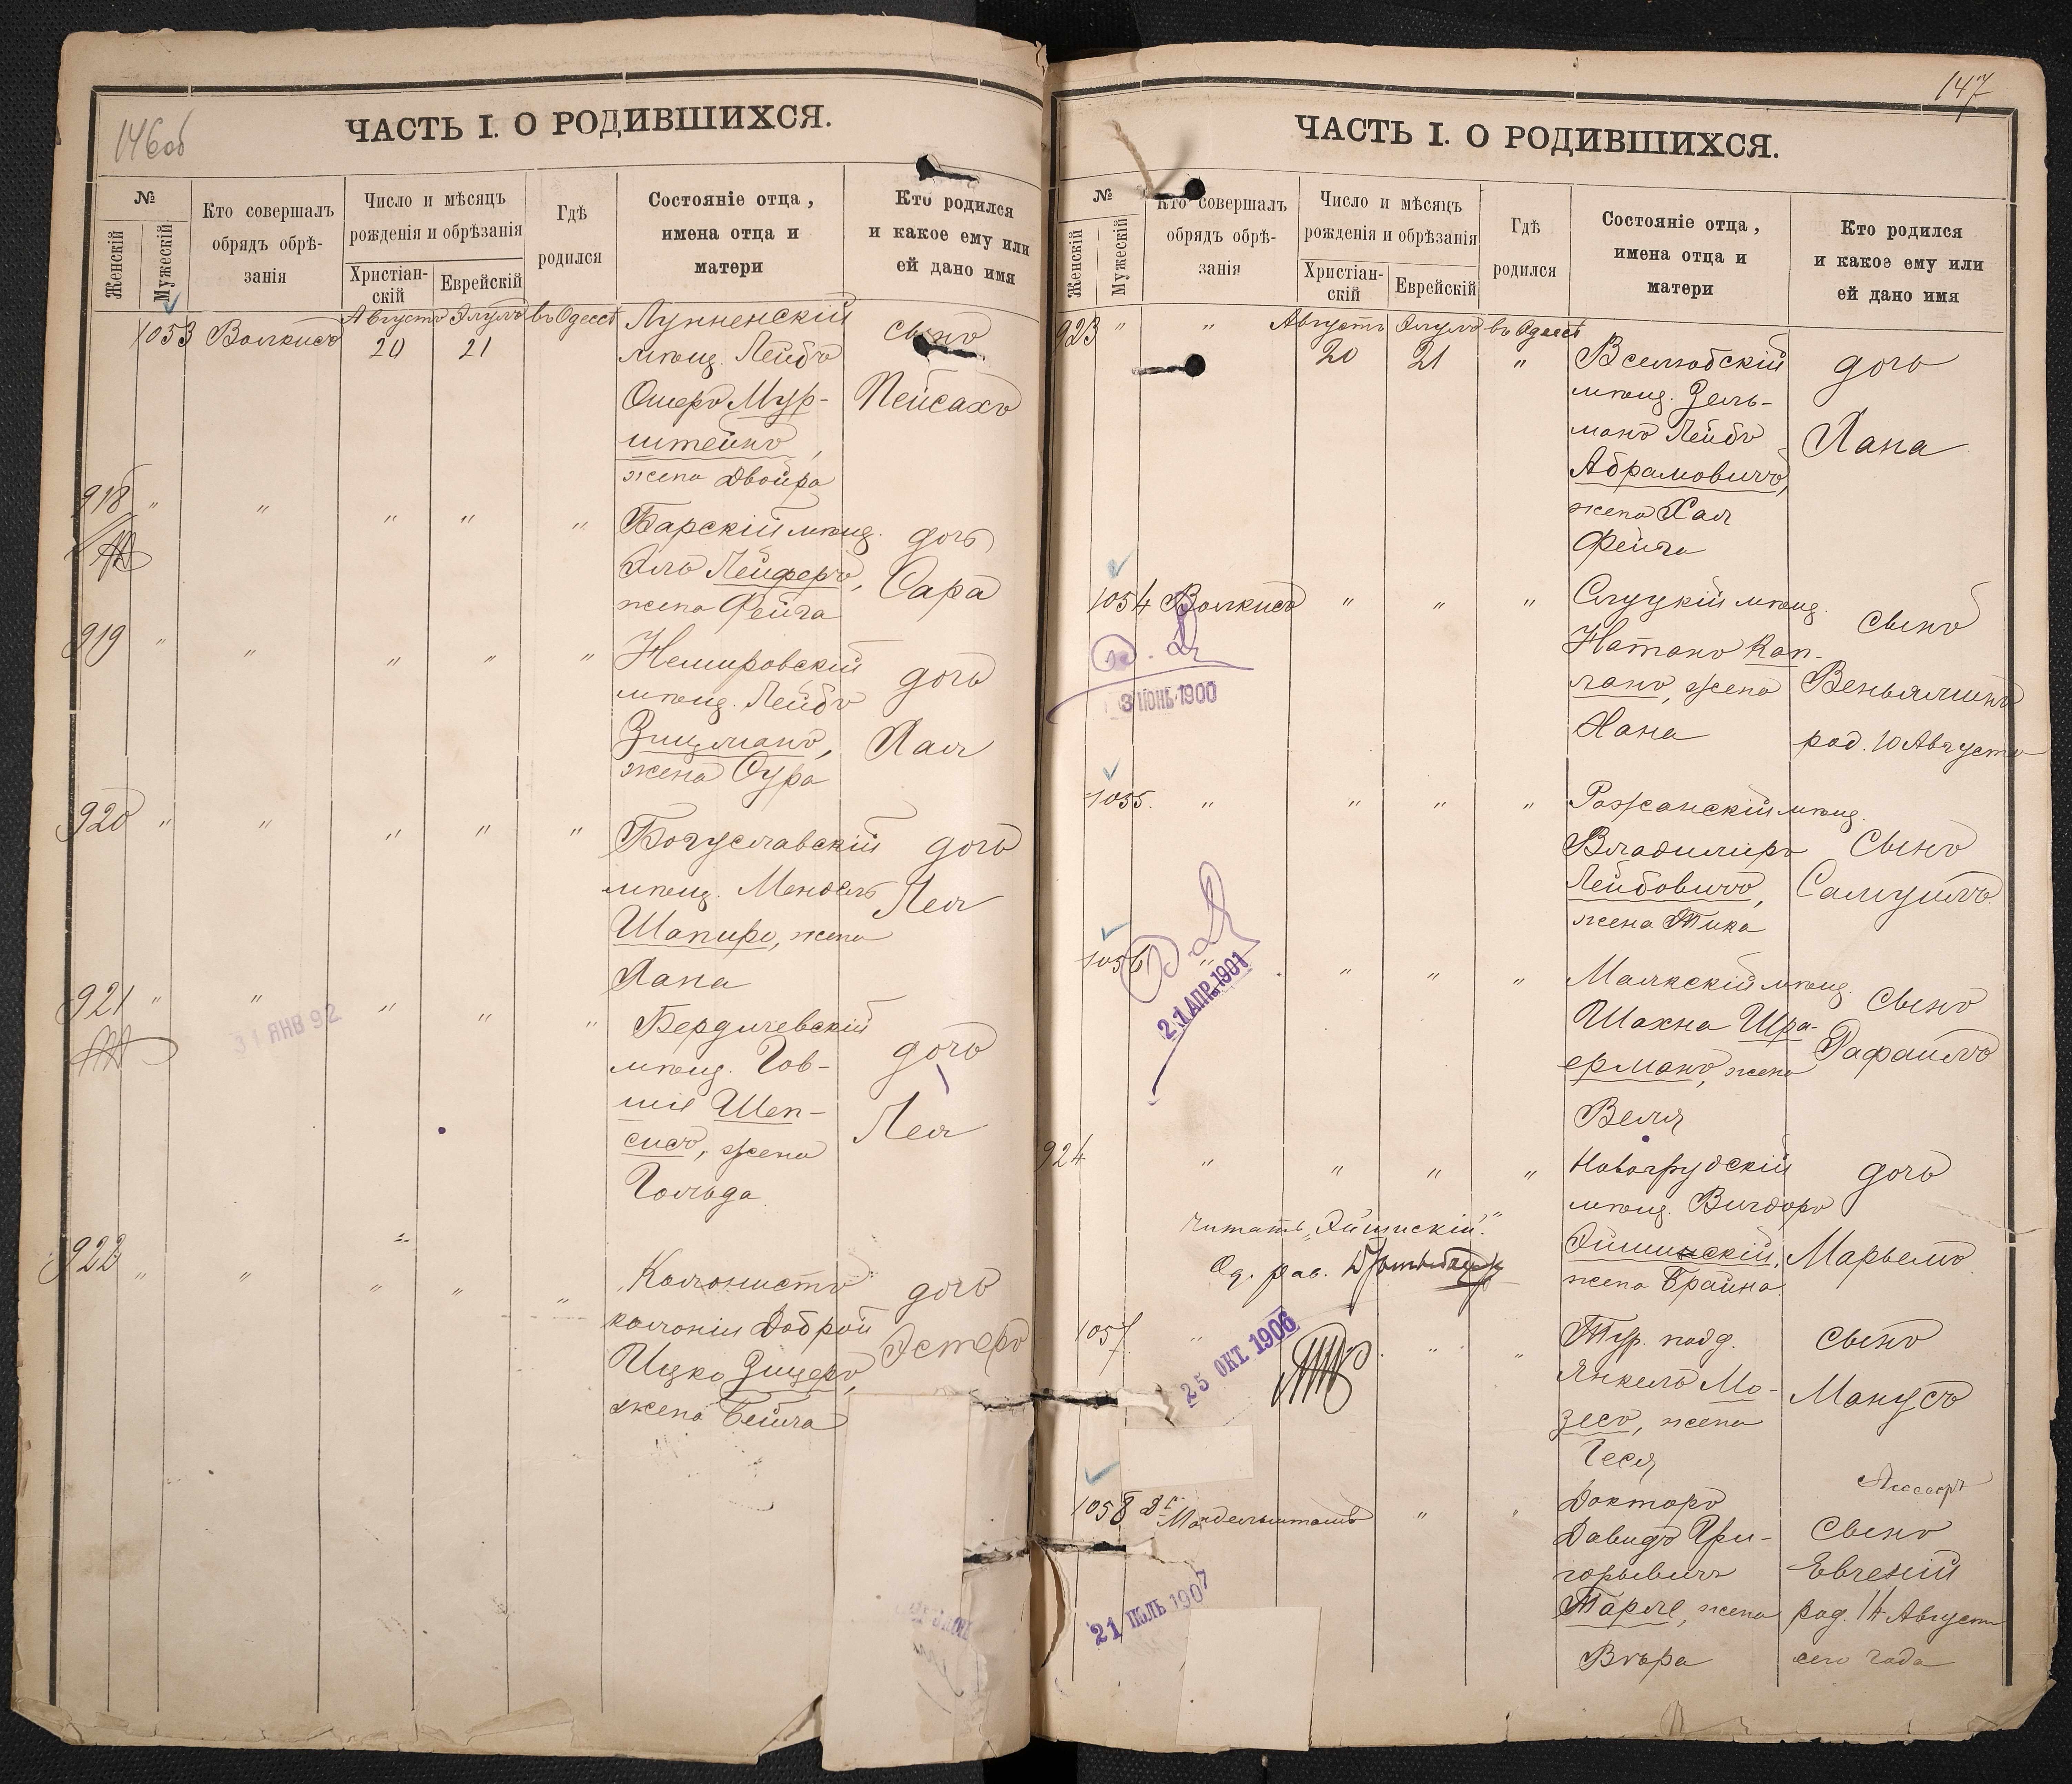 146об
ЧАСТЬ I. О РОДИВШИХСЯ.
№
Женскій
Мужескій
Кто совершалъ
обрядъ обрѣ-
занія
Число и мѣсяцъ
рожденія и обрѣзанія
Христіан-
скій
Еврейскій
Гдѣ
родился
Состояніе отца,
имена отца и
матери
Кто родился
и какое ему или
ей дано имя
1053 Волкисъ Августъ 20 Элулъ 21 въ Одессѣ
Лунненскій
мѣщ. Лейбъ
Ошеръ Мур-
штейнъ,
жена Двойра
сынъ
Пейсахъ
918 " " " " "
Барскій мѣщ.
Эль Лейферъ,
жена Фейга
дочь
Сара
919 " " " " "
Немировскій
мѣщ. Лейбъ
Зицманъ,
жена Сура
дочь
Хая
920 " " " " "
Богуславскій
мѣщ. Мендель
Шапиро, жена
Хана
дочь
Лея
921 " " " " "
31 ЯНВ 92
Бердичевскій
мѣщ. Гов-
шіе Шеп-
сисъ, жена
Гольда
дочь
Лея
922 " " " " "
Колонистъ
колоніи Доброй
Ицко Зицеръ,
жена Бейла
дочь
Эстеръ
147
ЧАСТЬ I. О РОДИВШИХСЯ.
№
Женскій
Мужескій
Кто совершалъ
обрядъ обрѣ-
занія
Число и мѣсяцъ
рожденія и обрѣзанія
Христіан-
скій
Еврейскій
Гдѣ
родился
Состояніе отца,
имена отца и
матери
Кто родился
и какое ему или
ей дано имя
923 " " Августъ 20 Элулъ 21 въ Одессѣ "
Вселюбскій
мѣщ. Зель-
манъ Лейбъ
Абрамовичъ,
жена Хая
Фейга
дочь
Хана
1054 Волкисъ " " "
3 ІЮНЬ 1900
Слуцкій мѣщ.
Натанъ Кап-
ланъ, жена
Хана
сынъ
Веньяминъ
род. 10 Августа
1055. " " " "
Рожанскій мѣщ.
Владиміръ
Лейбовичъ,
жена Тика
Сынъ
Самуилъ
1056 " " " "
21 АПР. 1901
Маякскій мѣщ.
Шахна Шра-
ерманъ, жена
Веля
Сынъ
Рафаилъ
924 " " " "
Новогрудскій
мѣщ. Вигдоръ
Эйшинскій,
жена Брайна
дочь
Марьемъ
Читать „Эйшискій."
Од. рав.
1057 " " "
25 ОКТ. 1906
Тур. подд.
Янкель Мо-
зесъ, жена
Геся
сынъ
Манусъ
1058 Дг. Мандельштамъ " "
21 ІЮЛЬ 1907
Докторъ
Давидъ Гри-
горьевичъ
Тарле, жена
Вѣра
Сынъ
Евгеній
род. 14 Августа
сего года